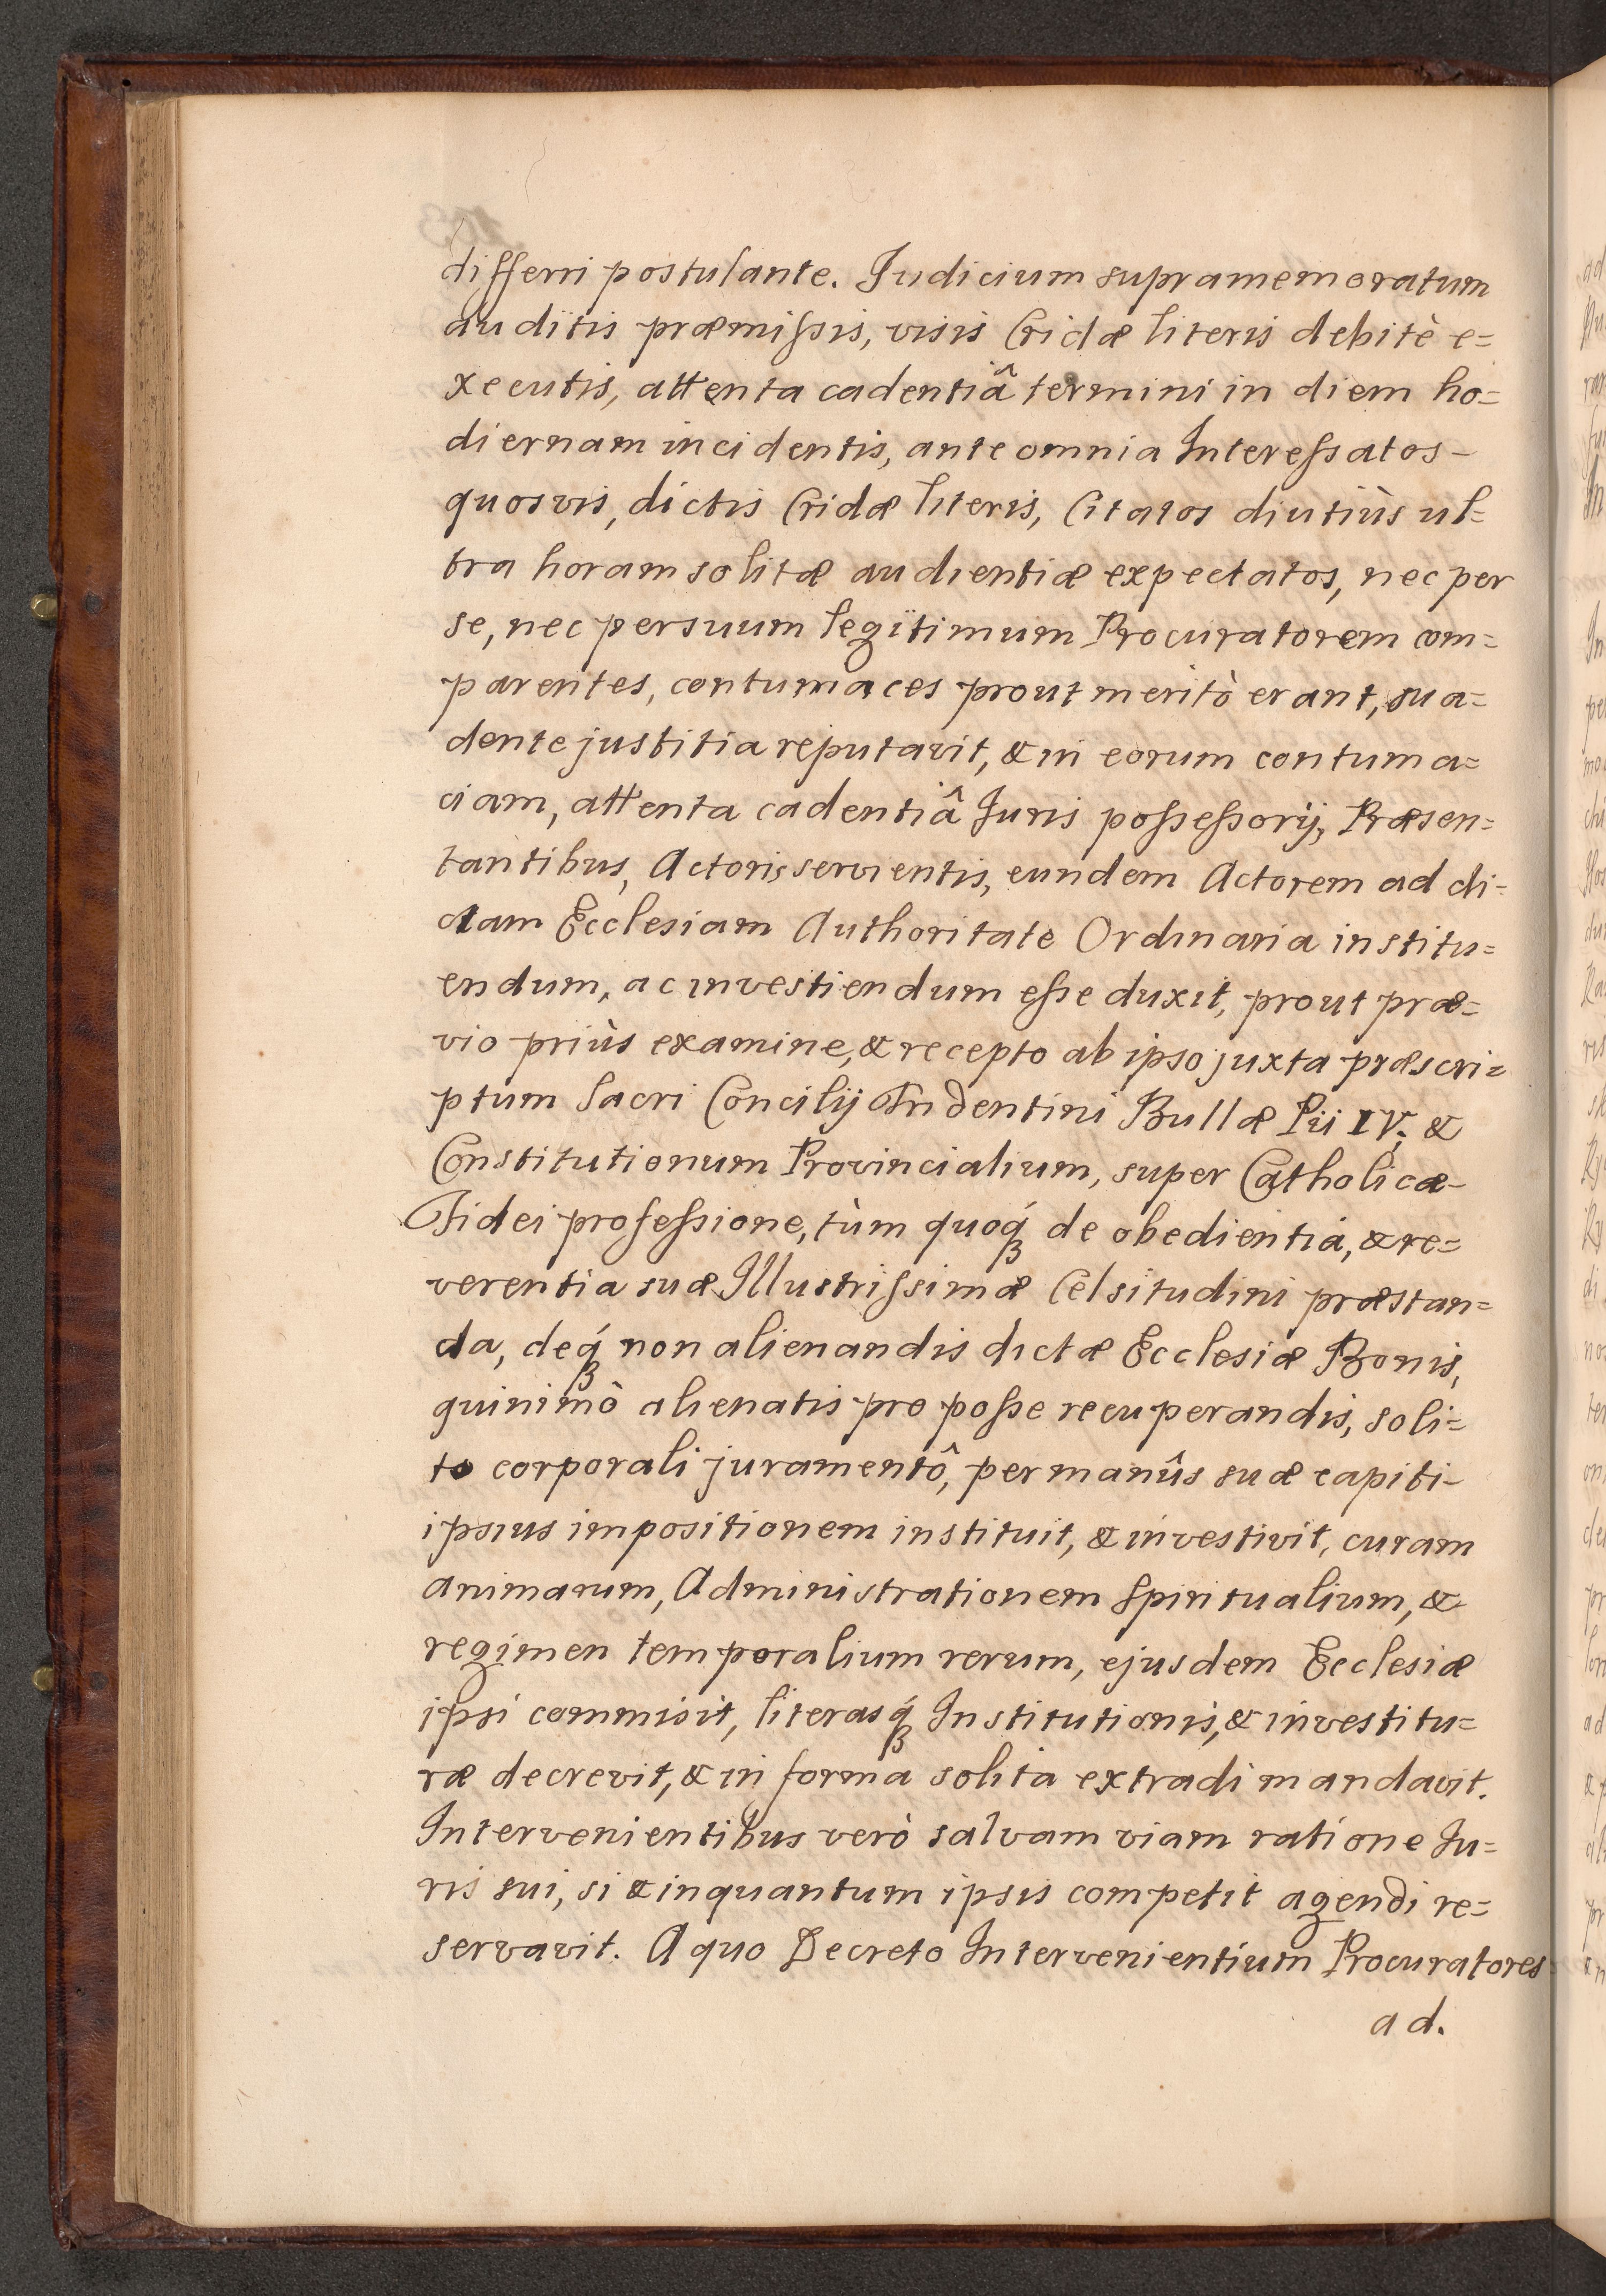 differri postulante. Judicium supramemoratum
auditis præmiſsis, visis Cridæ literis debitè e=
xecutis, attenta cadentiâ termini in diem ho=
diernam incidentis, ante omnia Intereſsatos-
quosvis, dictis Cridæ literis, Citatos diutiùs ul=
tra horam solitæ audientiæ expectatos, nec per
se, nec per suum legitimum Procuratorem com=
parentes, contumaces prout meritò erant, sua=
dente justitia reputavit, & in eorum contuma=
ciam, attenta cadentiâ Juris poſseſsorij, Præsen=
tantibus, Actoris servientis, eundem Actorem ad di=
ctam Ecclesiam Authoritate Ordinaria institu=
endum, ac investiendum eſse duxit, prout præ=
vio priùs examine, & recepto ab ipso juxta præscri=
ptum Sacri Concilij Tridentini Bullæ Pii IV. &
Constitutionum Provincialium, super Catholicæ-
Fidei profeſsione, tùm quoq́ȝ de obedientiá, & re=
verentia suæ Illustriſsimæ Celsitudini præstan=
da, deq́ȝ non alienandis dictæ Ecclesiæ Bonis,
quinimò alienatis pro poſse recuperandis, soli=
to corporali juramentô, per manûs suæ capiti-
ipsius impositionem instituit, & investivit, curam
animarum, Administrationem Spiritualium, &
regimen temporalium rerum, ejusdem Ecclesiæ
ipsi commisit, literasq́ȝ Institutionis, & investitu=
ræ decrevit, & in forma solita extradi mandavit.
Intervenientibus verò salvam viam ratione Ju=
ris sui, si & inquantum ipsis competit agendi re=
servavit. A quo Decreto Intervenientium Procuratores
ad.